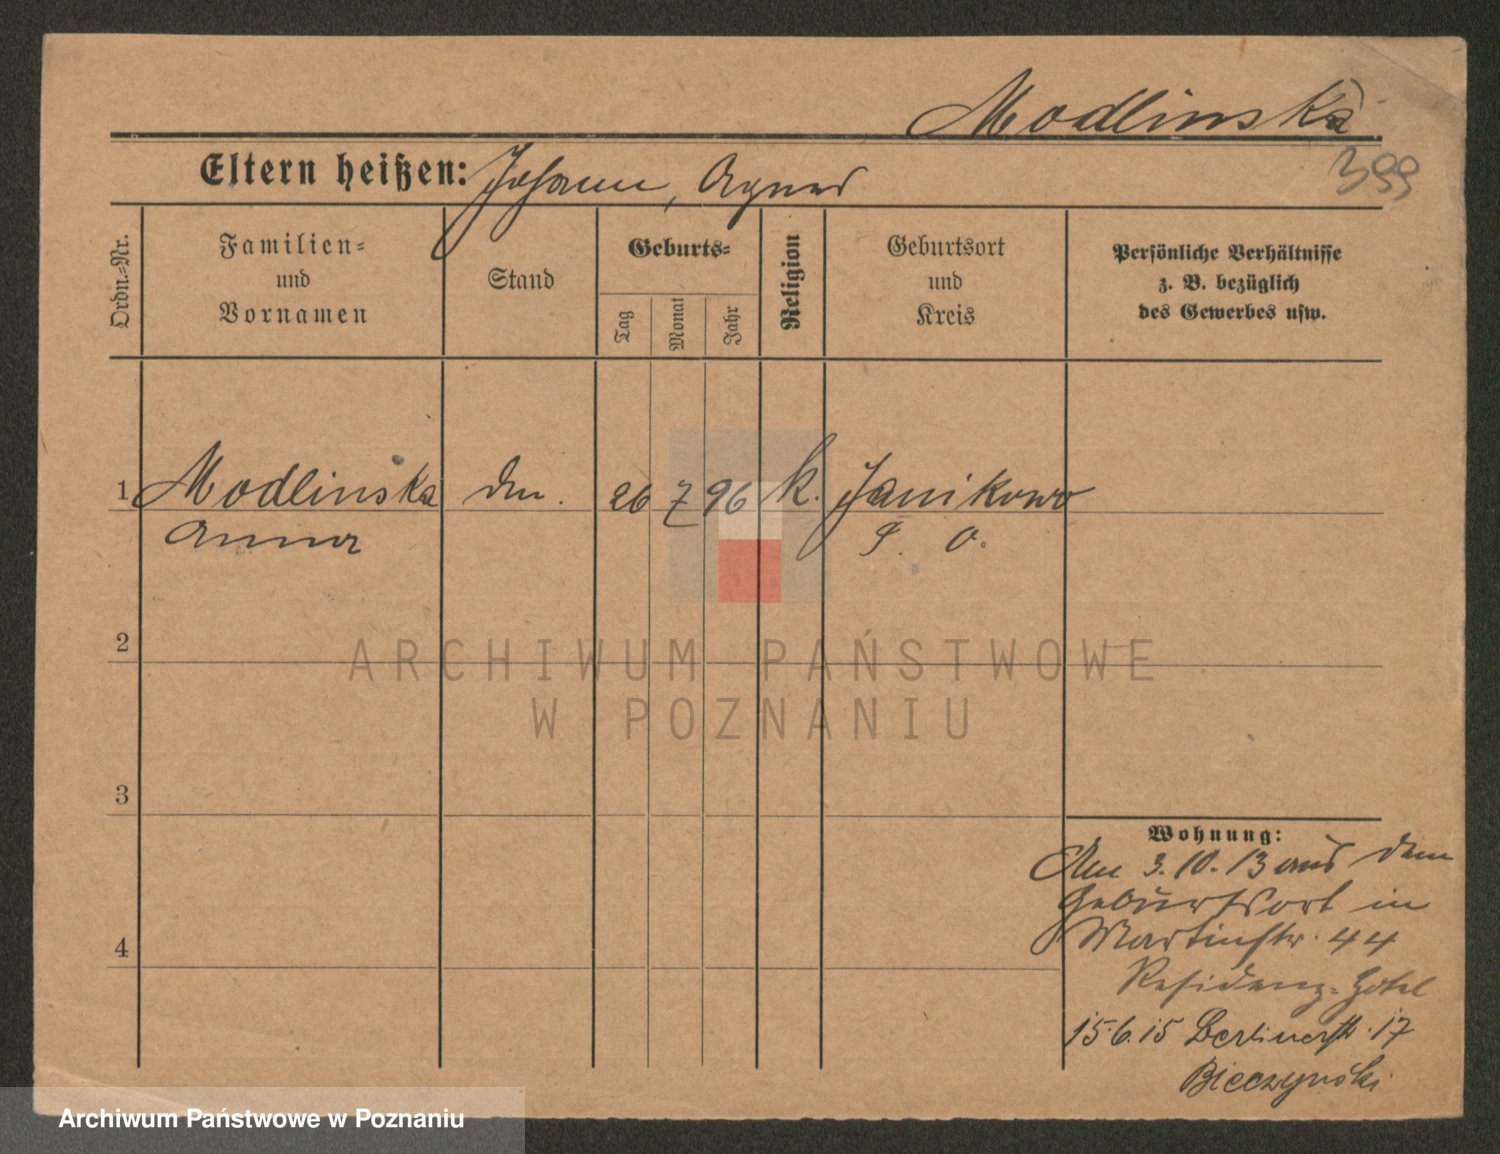 Modlinska
399
Eltern heißen: Johann, Agnes
Ordn.-Nr.
Familien- und Vornamen
Stand
Geburts-
Tag
Monat
Jahr
Religion
Geburtsort und Kreis
Persönliche Verhältnisse
z. B. bezüglich
des Gewerbes usw.
1 Modlinska 26 7 96 k. Janikowo
Anna P. O.
2
3
4
Wohnung:
Am 3.10.13 aus dem
Geburtsort in
Martinstr. 44
Residenz-Hotel
15.6.15 Berlinerstr. 17
Bieczynski
ARCHIWUM PAŃSTWOWE
W POZNANIU
Archiwum Państwowe w Poznaniu